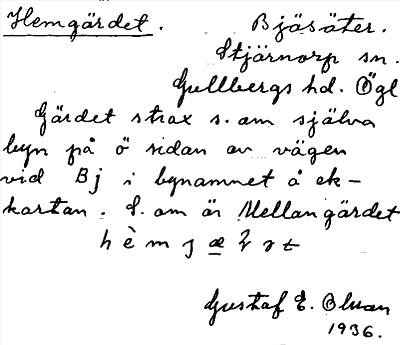 Hemgärdet. Bjäsäter.
Stjärnorp sn.
Gullbergs hd. Ögl
Gärdet strax s. om själva
byn på ö sidan av vägen
vid Bj i bynamnet å ek-
kartan. S. om är Mellangärdet
Gustaf E. Olsson
1936.